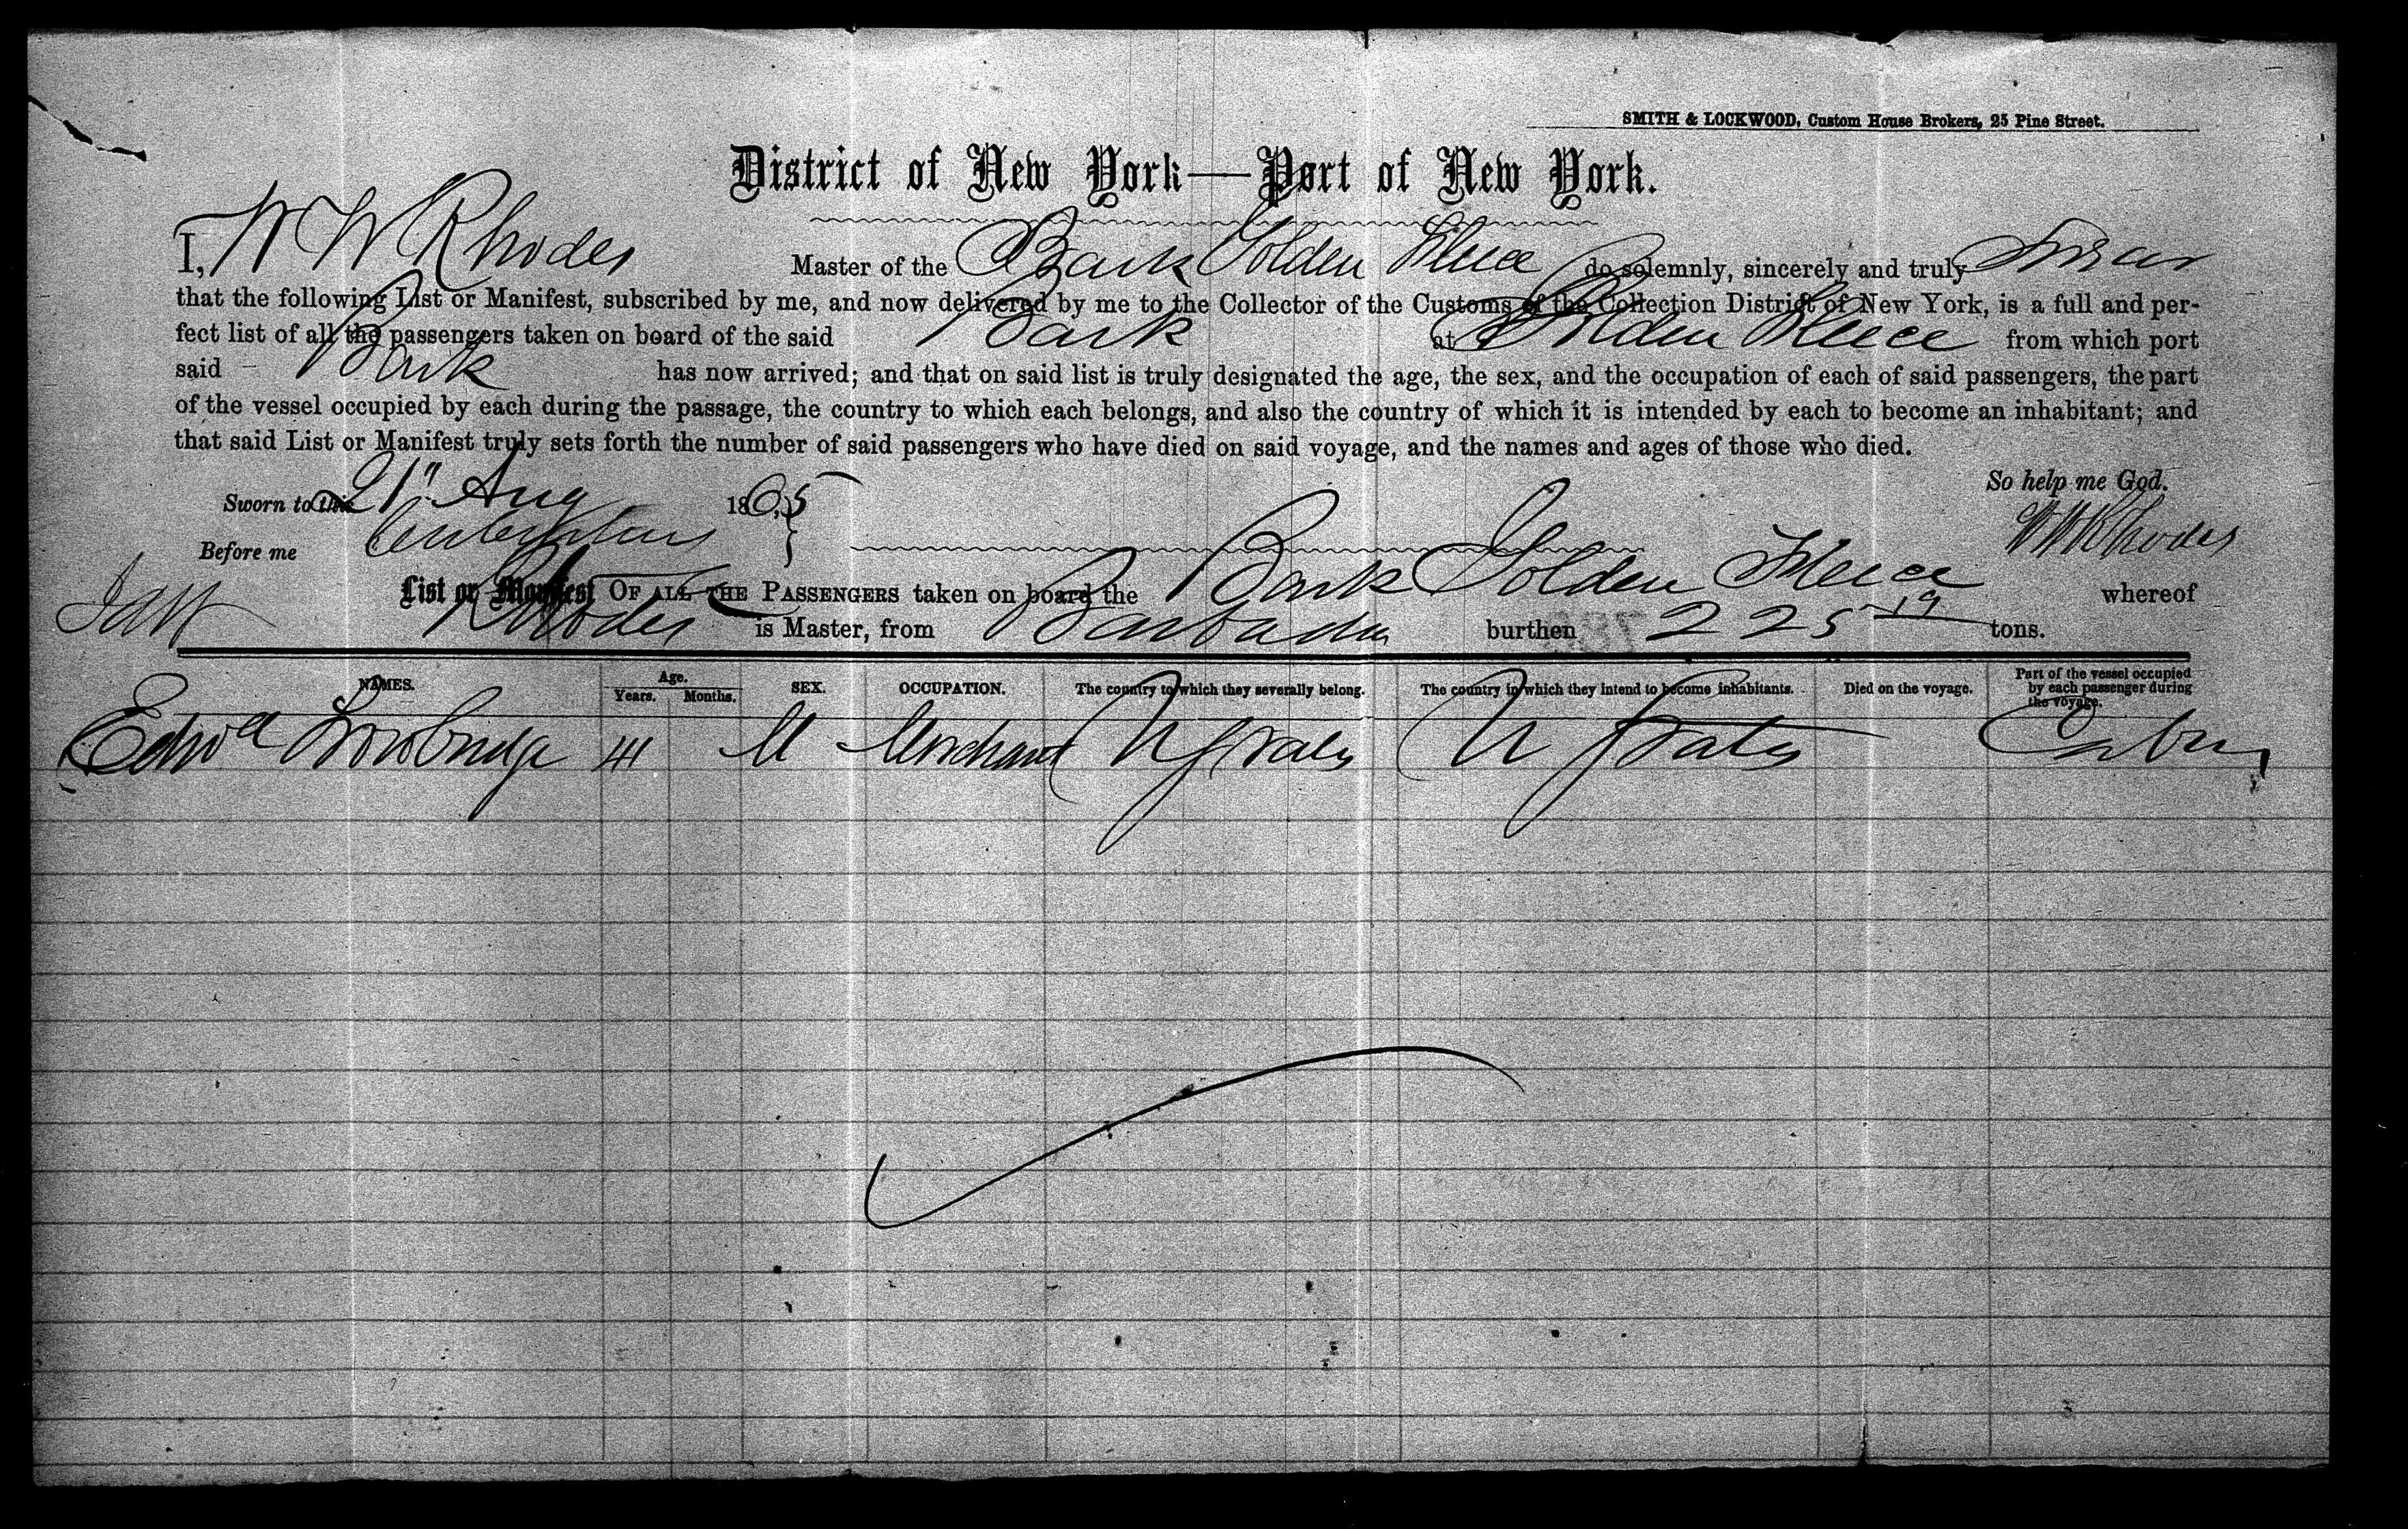 SMITH & LOCKWOOD, Custom House Brokers, 25 Pine Street.
District of New York—Port of New York.
I, W W Rhodes Master of the Bark Golden Fleece do solemnly, sincerely and truly Swear
that the following List or Manifest, subscribed by me, and now delivered by me to the Collector of the Customs of the Collection District of New York, is a full and per-
fect list of all the passengers taken on board of the said Bark at Golden Fleece from which port
said Bark has now arrived; and that on said list is truly designated the age, the sex, and the occupation of each of said passengers, the part
of the vessel occupied by each during the passage, the country to which each belongs, and also the country of which it is intended by each to become an inhabitant; and
that said List or Manifest truly sets forth the number of said passengers who have died on said voyage, and the names and ages of those who died.
So help me God.
Sworn to this 21" Aug 1865
W W Rhodes
Before me
List or Manifest OF ALL THE PASSENGERS taken on board the Bark Golden Fleece whereof
Rhodes is Master, from Barbados burthen 225 19 tons.
NAMES. Age. Years. Months. SEX. OCCUPATION. The country to which they severally belong. The country in which they intend to become inhabitants. Died on the voyage. Part of the vessel occupied by each passenger during the voyage.
Edwd Trowbridge 41 M Merchant U States U States Cabin